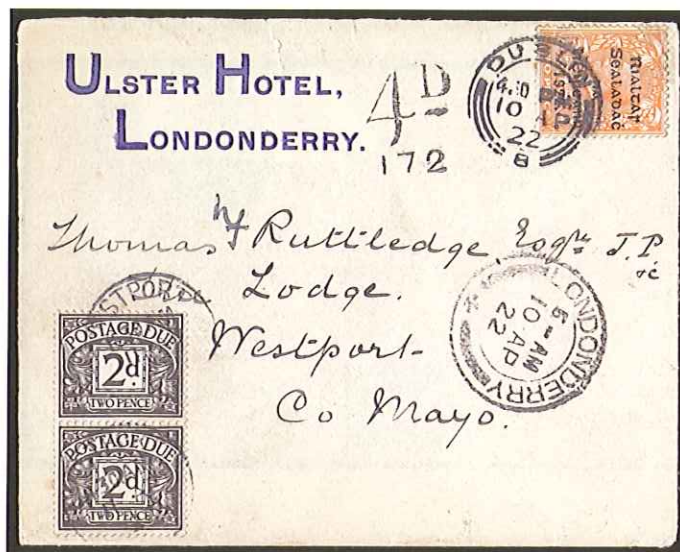 ULSTER HOTEL,
LONDONDERRY.
4D
172
DUBLIN
4.30
10 A
22
8
Rialtaṗ
Sealadaċ
Thomas H Ruttledge, Esqre J.P
Lodge.
Westport
Co Mayo.
LONDONDERRY
5-AM
10 AP
22
STPOR
POSTAGE DUE
2d
TWO PENCE
POSTAGE DUE
2d
TWO PENCE